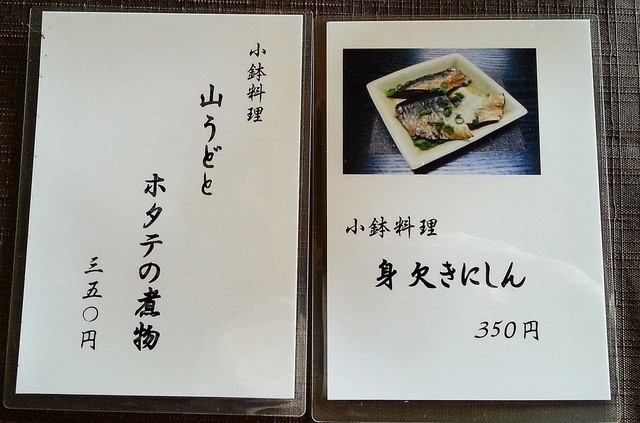 小鉢料理
山うどと
ホタテの煮物
三五〇円
小鉢料理
身欠きにしん
350円